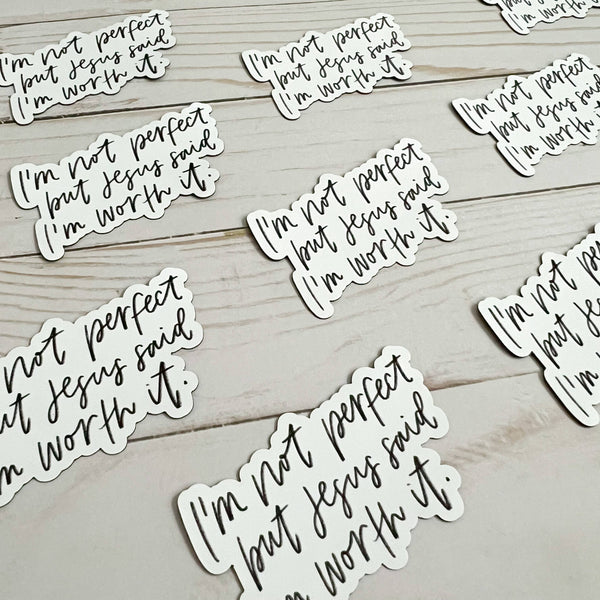 I'm worth it.
I'm not perfect
but Jesus said
I'm worth it.
I'm not perfect
but Jesus said
I'm worth it.
I'm not perfect
but Jesus said
I'm worth it.
I'm not perfect
but Jesus said
I'm worth it.
I'm not perfect
but Jesus said
I'm worth it.
I'm not
but
I'm
not perfect
Jesus said
worth it.
I'm not perfect
but Jesus said
I'm worth it.